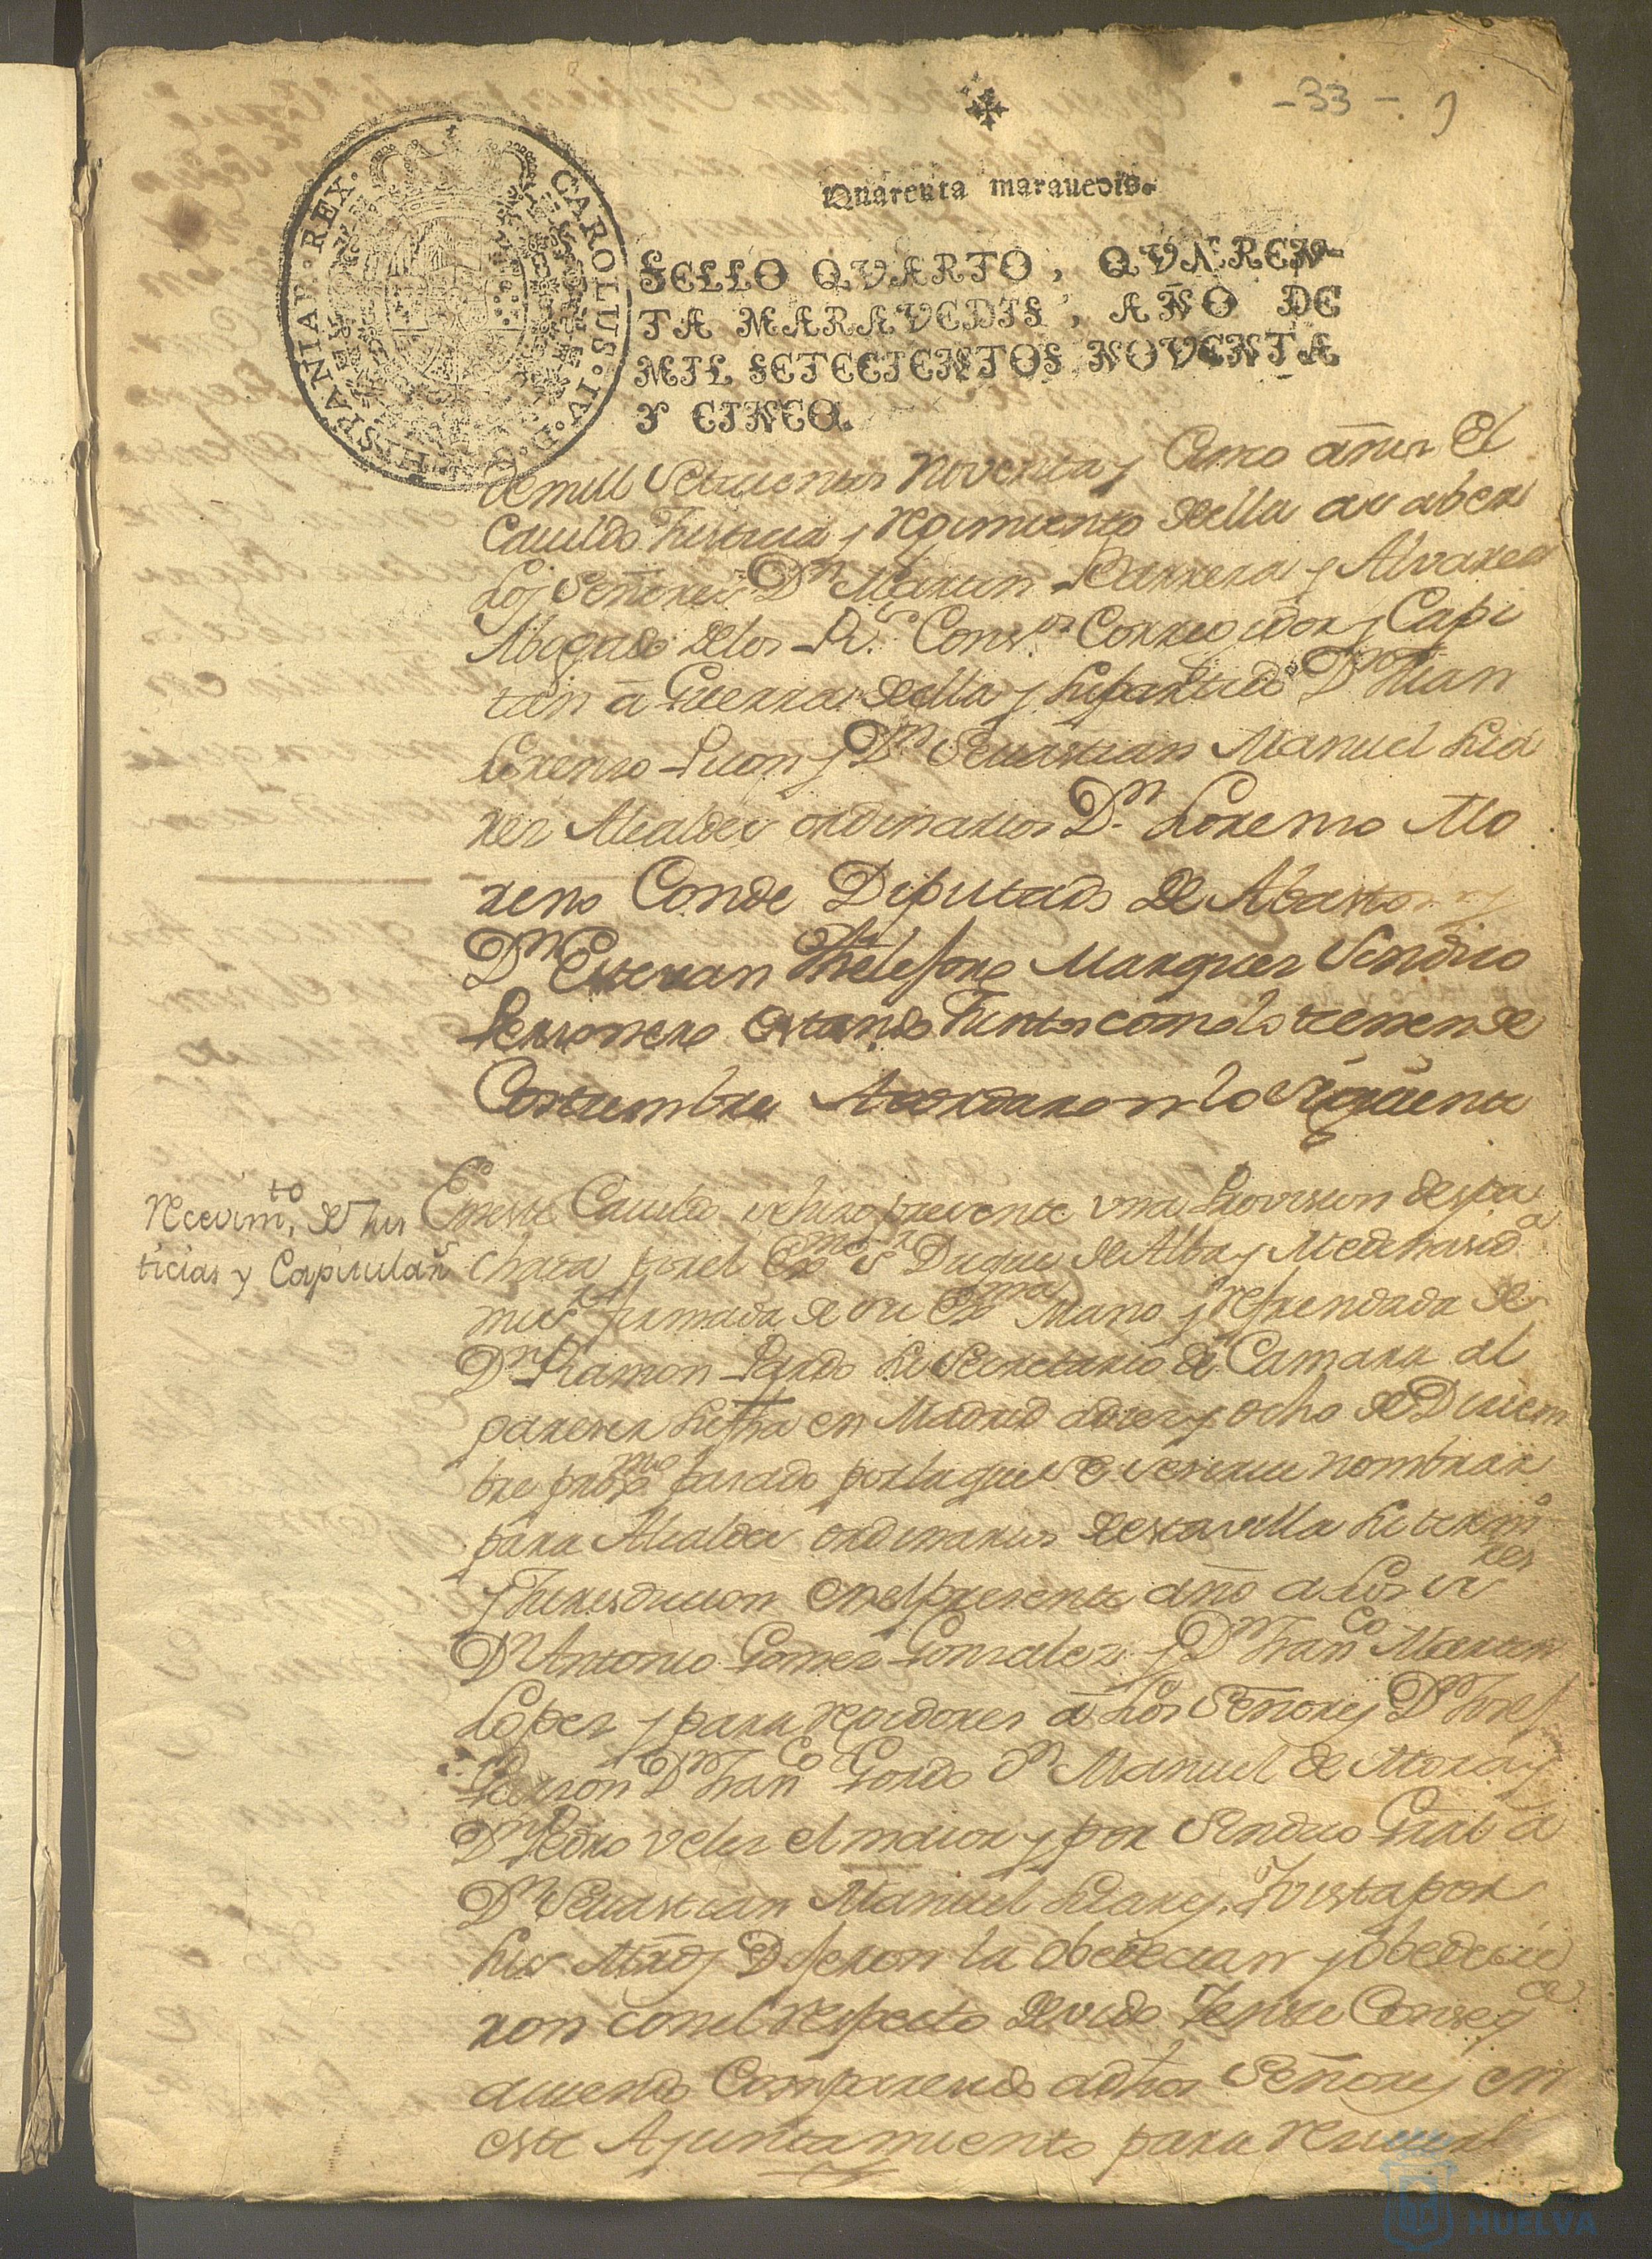 -33-
Quarenta maravedis.
CAROLUS·IV·D·G·HISPANIAR·REX·
SELLO QVARTO, QVAREN-
TA MARAVEDIS, AÑO DE
MIL SETECIENTOS NOVENTA
Y CINCO.
de mill setecientos noventa y Cinco años El
Cavildo Justicia y regimiento della
Los Señores Dn Martin Barrera y Alvarez
Abogado delos Rs. Consos. Corregidor y Capi
tan à Guerra della y su partido Dn Juan
Lorenzo Picon y Dn Sevastian Manuel Sua
rez Alcaldes ordinarios Dn Lorenzo Mo
reno Conde Diputado de Abastos y
Dn Estevan Thelesforo Marquez Sindico
Personero estando Juntos como lo tienen de
Costumbre Acordaron lo siguiente
Recevimto. de Jus
ticias y Capitulars
En este Cavildo se hizo presente una Provision despa
chada por el Exmo Sr Duque de Alba y Medinasida
mi Sr firmada de su Exma Mano y refrendada de
Dn Ramon Pardo su Secretario de Camara al
parecer su fha en Madrid a diez y ocho de Diciem
bre proxmo pasado por la que S.E. se sirve nombrar
para Alcaldes ordinarios de esta villa su termno
y Jurisdiccion en el presente año a Los Sres
Dn Antonio Gomez Gonzalez y Dn Franco Martin
Lopez y para regidores à Los Señores Dn Josef
Garzon Dn Franco Gordo Dn Manuel de Mora y
Dn Pedro Velez el maior y por Sindico Gral à
Dn Sevastian Manuel Suarez. Y vista por
sus Mrds Dijeron la obedecian y obedecie
ron con el respecto devido Y en su Conseqca
aviendo Comparecido dhos Señores en
este Ayuntamiento para
HUELVA